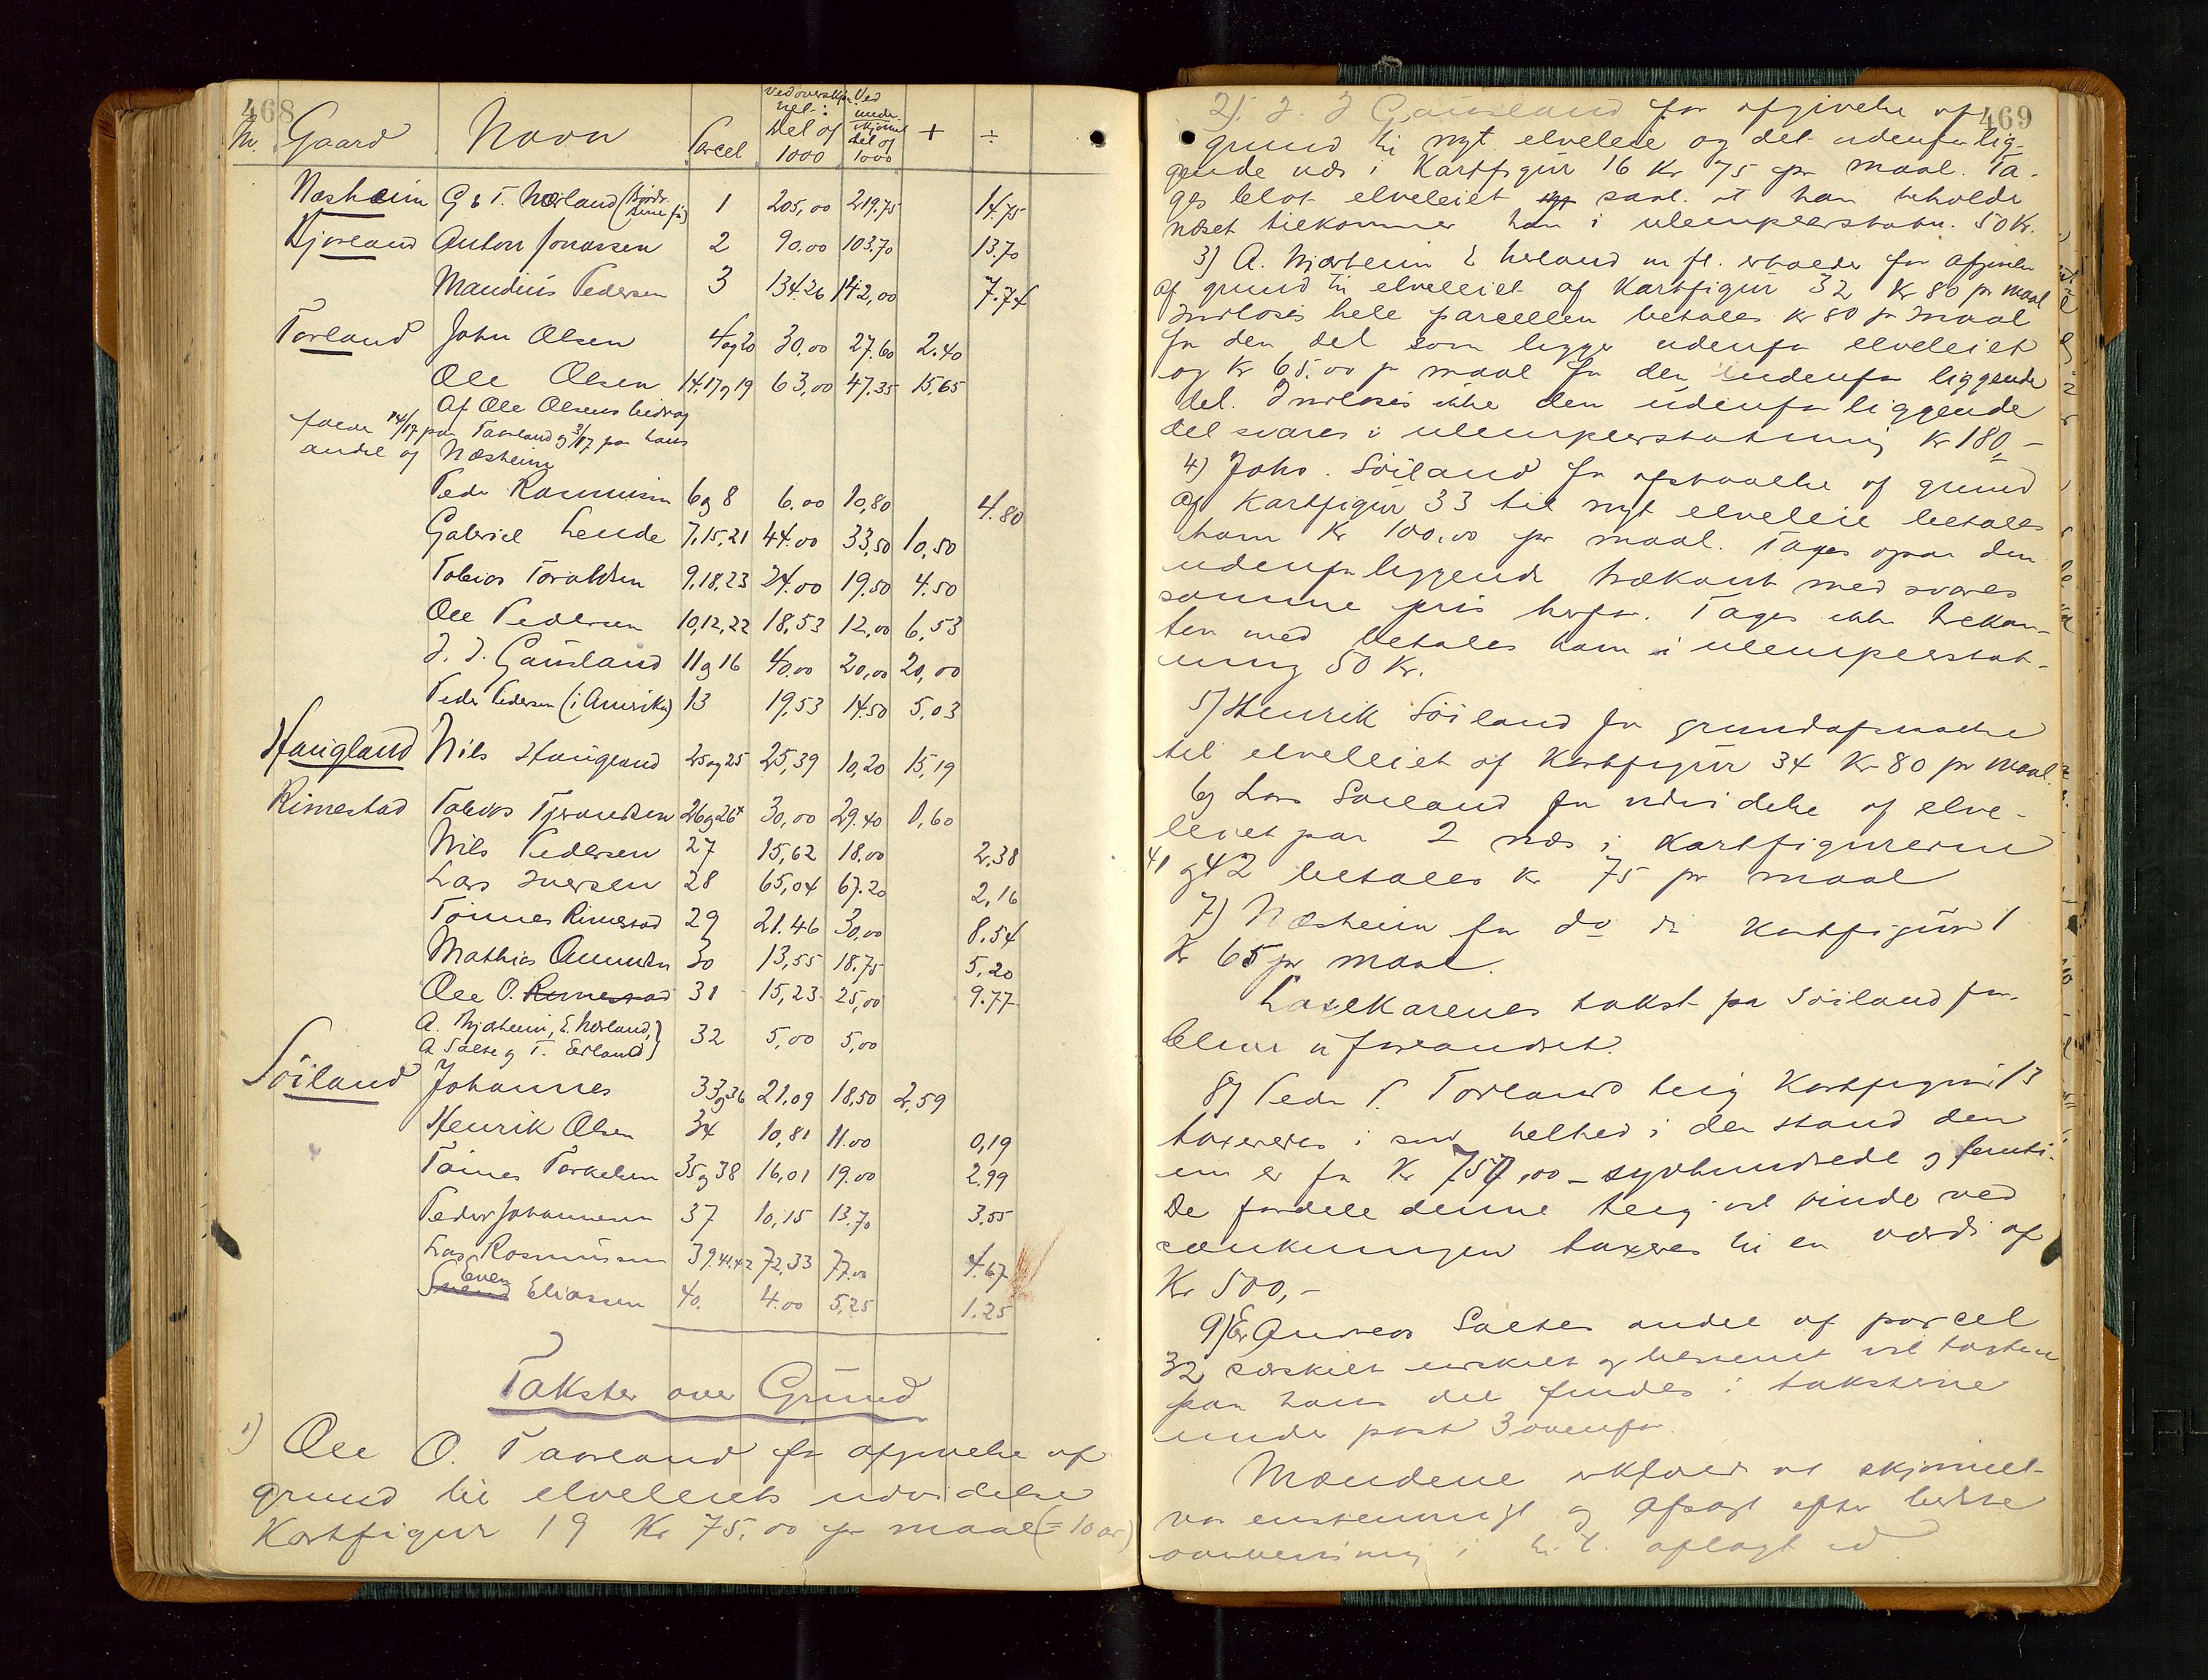 468
M. Gaard Navn Parcel Ved overskjøn: Del af 1000 Ved underskjønnet Del af 1000 + ÷
Næsheim G & T. Nærland (Brødrene fra) 1 205,00 219.75 14.75
Njærland Anton Jonassen 2 90.00 103.70 13.70
Mandius Pedersen 3 134.26 142,00 7.74
Torland John Olsen 4 og 20 30,00 27.60 2.40
Ole Olsen 14.17 og 19 63,00 47.35 15,65
Af Ole Olsens bidrag
falder 14/17 paa Taarland og 3/17 paa hans
andel af Næsheim
Peder Rasmussen 6 og 8 6.00 10,80 4.80
Gabriel Lende 7,15,21 44.00 33,50 10,50
Tobias Toraldsen 9,18,23 24.00 19.50 4.50
Ole Pedersen 10,12,22 18,53 12,00 6,53
J. J. Gausland 11 og 16 40.00 20,00 20,00
Peder Pedersen (i Amerika) 13 19,53 14.50 5,03
Haugland Nils Haugland 25 og 25 25,39 10,20 15,19
Rimestad Tobias Tjerandsen 26 og 26x 30,00 29.40 0,60
Nils Pedersen 27 15,62 18.00 2,38
Lars Iversen 28 65,04 67.20 2,16
Tönnes Rimestad 29 21.46 30,00 8.54
Mathias Amundsen 30 13,55 18.75 5,20
Ole O. Rimestad 31 15,23 25,00 9.77
A. Njærheim, E. Nærland,
A Salte og T. Erland 32 5,00 5,00
Söiland Johannes 33 og 36 21,09 18,50 2,59
Henrik Olsen 34 10,81 11.00 0,19
Tönnes Torkelsen 35 og 38 16,01 19.00 2.99
Peder Johannesen 37 10,15 13.70 3,55
Lars Rasmussen 39.41.42 72,33 77.00 4.67
Even
Svend Eliassen 40. 4.00 5,25 1.25
Takster over Grund
1) Ole O. Taarland for afgivelse af
grund til elveleiets udvidelse
Kartfigur 19 Kr 75,00 pr maal (= 10 ar)
469
2). J J Gausland for afgivelse af
grund til nyt elveleie og det udenfor lig-
gende næs i Kartfigur 16 Kr 75 pr maal. Ta-
ges blot elveleiet saal. at han beholder
næset tilkommer ham i ulempeerstatn. 50 Kr.
3) A. Njærheim E Nærland m fl. erholder for afgivelse
af grund til elveleiet af Kartfigur 32 Kr 80 pr maal
Indløses hele parcellen betales kr 80 pr maal
for den del som ligger udenfor elveleiet
og Kr 65.00 pr maal for den indenfor liggende
del. Indløses ikke den udenfor liggende
del svares i ulempeerstatning Kr 180,-
4) Johs. Söiland for afstaaelse af grund
af Kartfigur 33 til nyt elveleie betales
ham Kr 100,00 pr maal. Tages ogsaa den
udenfor liggende trekant med svares
samme pris herfor. Tages ikke trekan-
ten med betales ham i ulempeerstat-
ning 50 Kr.
5) Henrik Söiland for grundafstaaelse
til elveleiet af Kartfigur 34 Kr 80 pr maal.
6) Lars Søiland for udvidelse af elve-
leiet paa 2 næs i kartfigurerne
41 og 42 betales kr 75 pr maal
7) Næsheim for do i Kartfigur 1
Kr 65 pr maal.
Laxekarenes takst paa Söiland for-
bliver uforandret.
8) Peder P. Torland teig Kartfigur 13
taxeres i sin helhed i den stand den
nu er for Kr 750,00 - syvhundrede og femti.
De fordele denne teig vil vinde ved
sænkningen taxeres til en værdi af
Kr 500,-
9) Er Andreas Saltes andel af parcel
32 særskilt utskilt og bestemt vil taksten
paa hans del findes i taksterne
under post 3 ovenfor.
Mændene erklærer at skjønnet
var enstemmigt og afsagt efter bedste
overbevisning i h. t. aflagt ed